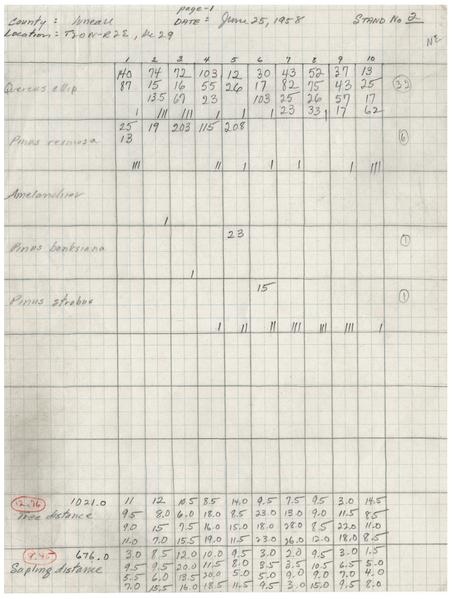 page-1
County: Juneau DATE: June 25, 1958 STAND No 2
Location: T20N-R2E, Sec 29 NE
1 2 3 4 5 6 7 8 9 10
140 74 72 103 12 30 43 52 37 13
Quercus ellip 87 15 16 55 26 17 82 75 43 25 32
13.5 67 23 103 25 26 57 17
23 33 17 62
25 19 203 115 208
Pinus resinosa 13 6
Amelanchier
23
Pinus banksiana 1
15
Pinus strobus 1
12.76 1021.0 11 12 10.5 8.5 14.0 9.5 7.5 9.5 3.0 14.5
Tree distance 9.5 8.0 6.0 18.0 8.5 23.0 13.0 9.0 11.5 8.5
9.0 15 7.5 16.0 15.0 18.0 28.0 8.5 22.0 11.0
11.0 7.0 15.5 19.0 11.5 23.0 26.0 12.0 18.0 8.5
8.45 676.0 3.0 8.5 12.0 10.0 9.5 3.0 2.0 9.5 3.0 1.5
Sapling distance 9.5 9.5 9.5 11.5 8.0 3.5 3.5 10.5 6.5 5.0
5.5 6.0 13.5 20.0 5.0 5.0 9.0 9.0 7.0 4.0
7.0 15.5 16.0 18.5 11.5 9.5 3.0 15.0 9.5 8.0